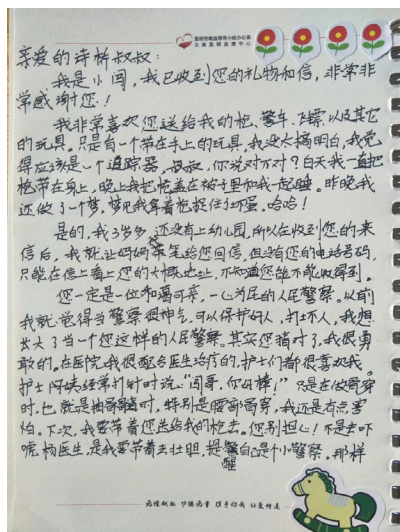 昆明市献血领导小组办公室
云南昆明血液中心
亲爱的诗桥叔叔：
我是小闯，我已收到您的礼物和信，非常非
常感谢您！
我非常喜欢您送给我的枪、警车、飞镖以及其它
的玩具。只是有一个带在手上的玩具，我没太搞明白，我觉
得应该是一个追踪器，叔叔，你说对不对？白天我一直把
枪带在身上，晚上我把枪盖在被子里和我一起睡。昨晚我
还做了一个梦，梦见我拿着枪捉住坏蛋，哈哈！
是的，我3岁多，还没有上幼儿园，所以在收到您的来
信后，我就让妈妈代笔给您回信，但没有您的电话号码，
只能在信上看上您的大概地址，不知道您能不能收得到。
您一定是一位和蔼可亲，一心为民的人民警察。以前
我就觉得当警察很神气，可以保护好人，打坏人，我想
长大了当一个您这样的人民警察。其实您猜对了，我很勇
敢的。在医院我很配合医生治疗的，护士们都很喜欢我。
护士阿姨经常打针时说："闯哥，你好棒！"只是在做骨穿
时，也就是抽骨髓时，特别是腰部骨穿，我还是有点害
怕。下次，我要带着您送给我的枪去。您别担心！不是去吓
唬杨医生，是我要带着去壮胆，提醒自己是个小警察，那样
为增献血 功德无量 携手你我 让爱传递